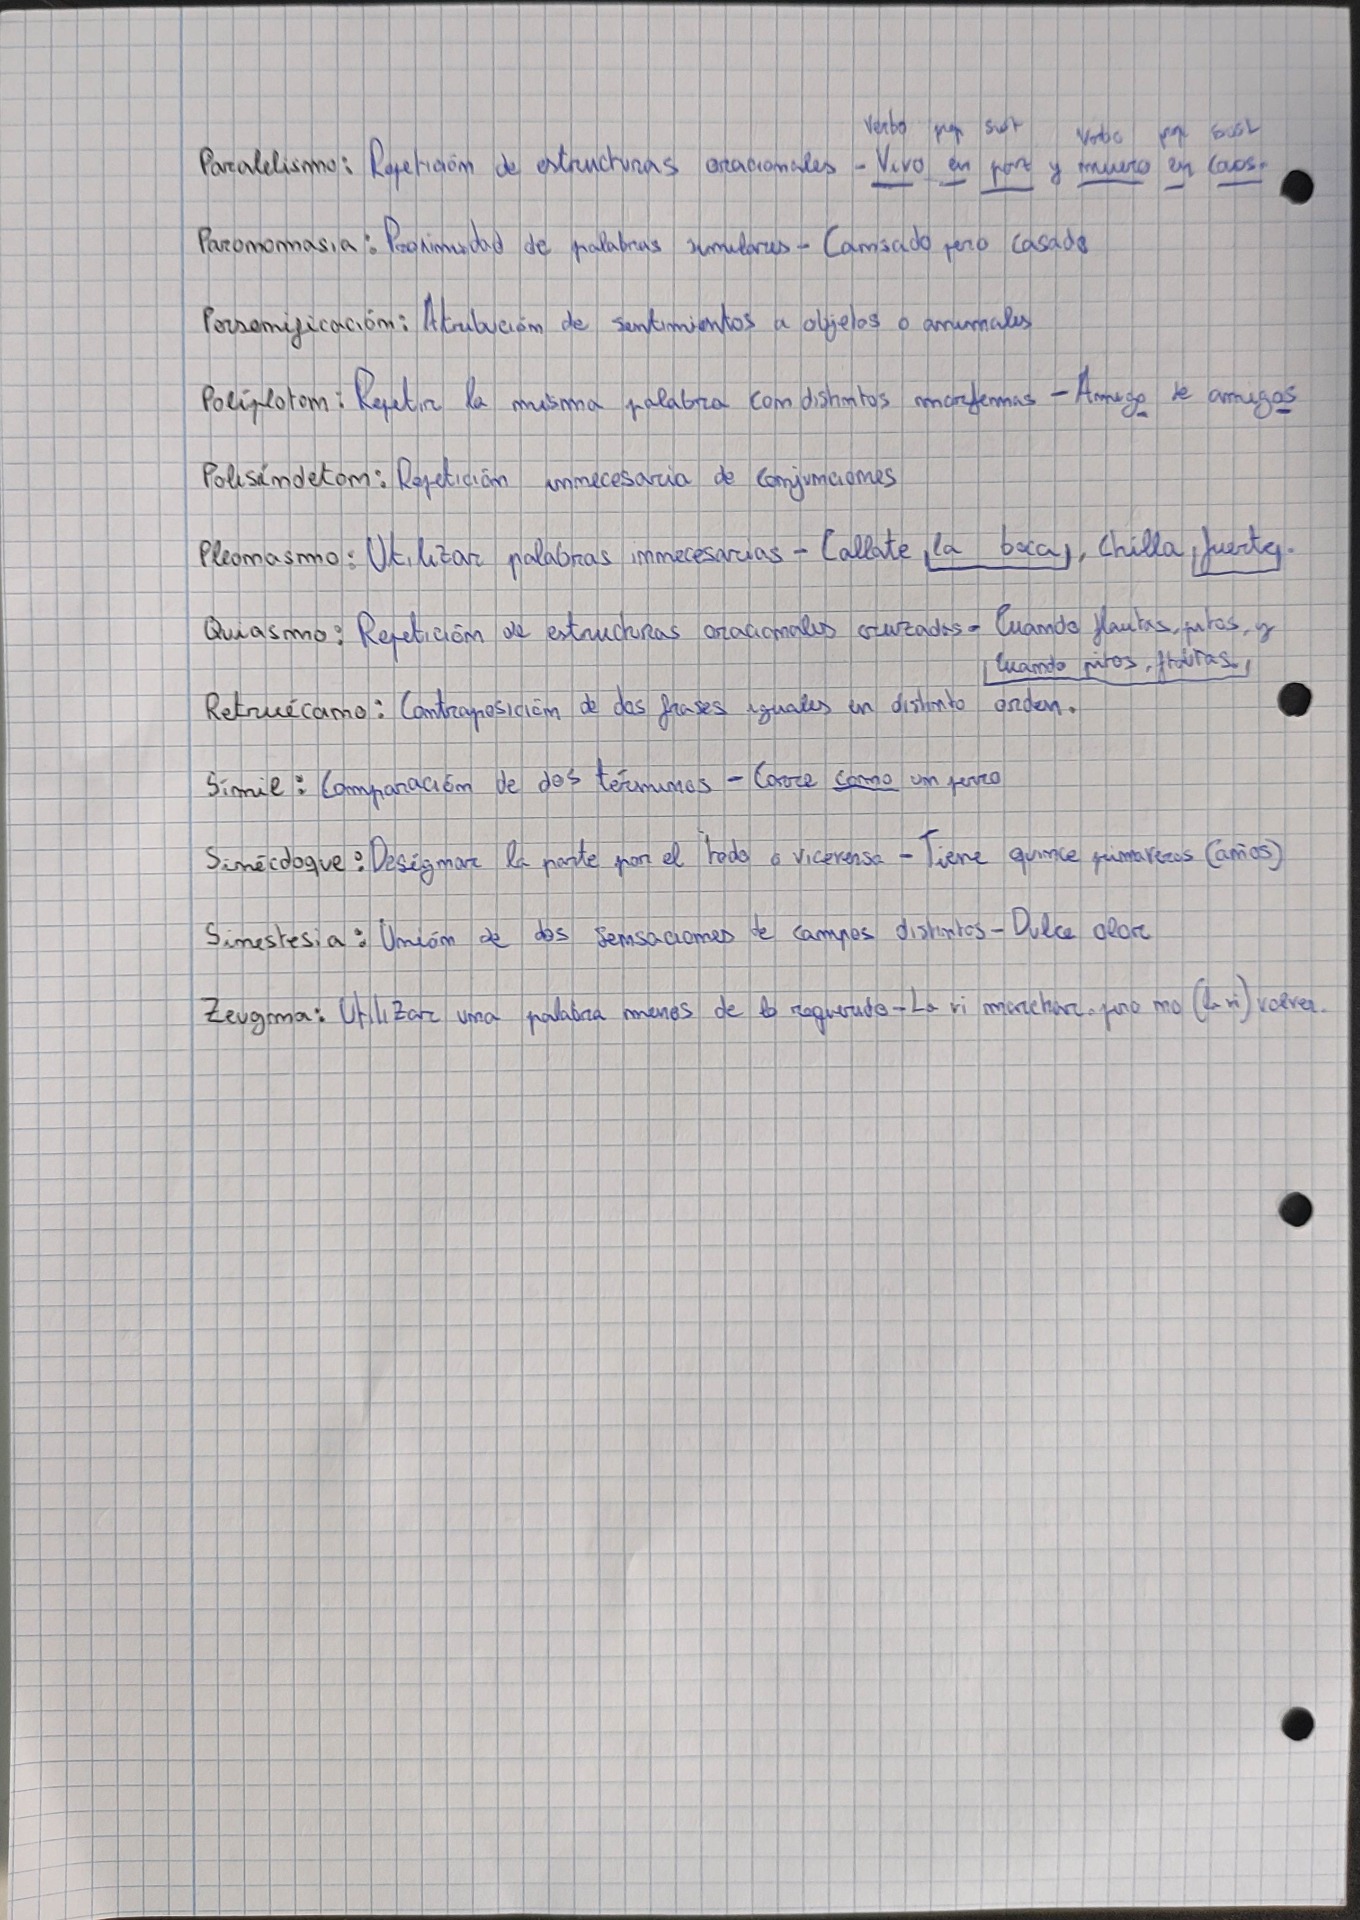 verbo prep sust verbo prep sust
Paralelismo: Repetición de estructuras oracionales - Vivo en paz y muero en caos.
Paronomasia: Proximidad de palabras similares - Cansado pero casado
Personificación: Atribución de sentimientos a objetos o animales
Políptoton: Repetir la misma palabra con distintos morfemas - Amigo de amigos
Polisíndeton: Repetición innecesaria de conjunciones
Pleonasmo: Utilizar palabras innecesarias - Callate la boca, Chilla fuerte.
Quiasmo: Repetición de estructuras oracionales cruzadas - Cuando flautas, pitos, y
cuando pitos, flautas.
Retruécano: Contraposición de dos frases iguales en distinto orden.
Símil: Comparación de dos términos - Corre como un perro
Sinécdoque: Designar la parte por el todo o viceversa - Tiene quince primaveras (años)
Sinestesia: Unión de dos sensaciones de campos distintos - Dulce olor
Zeugma: Utilizar una palabra menos de lo requerido - La vi marchar, pero no (la vi) volver.